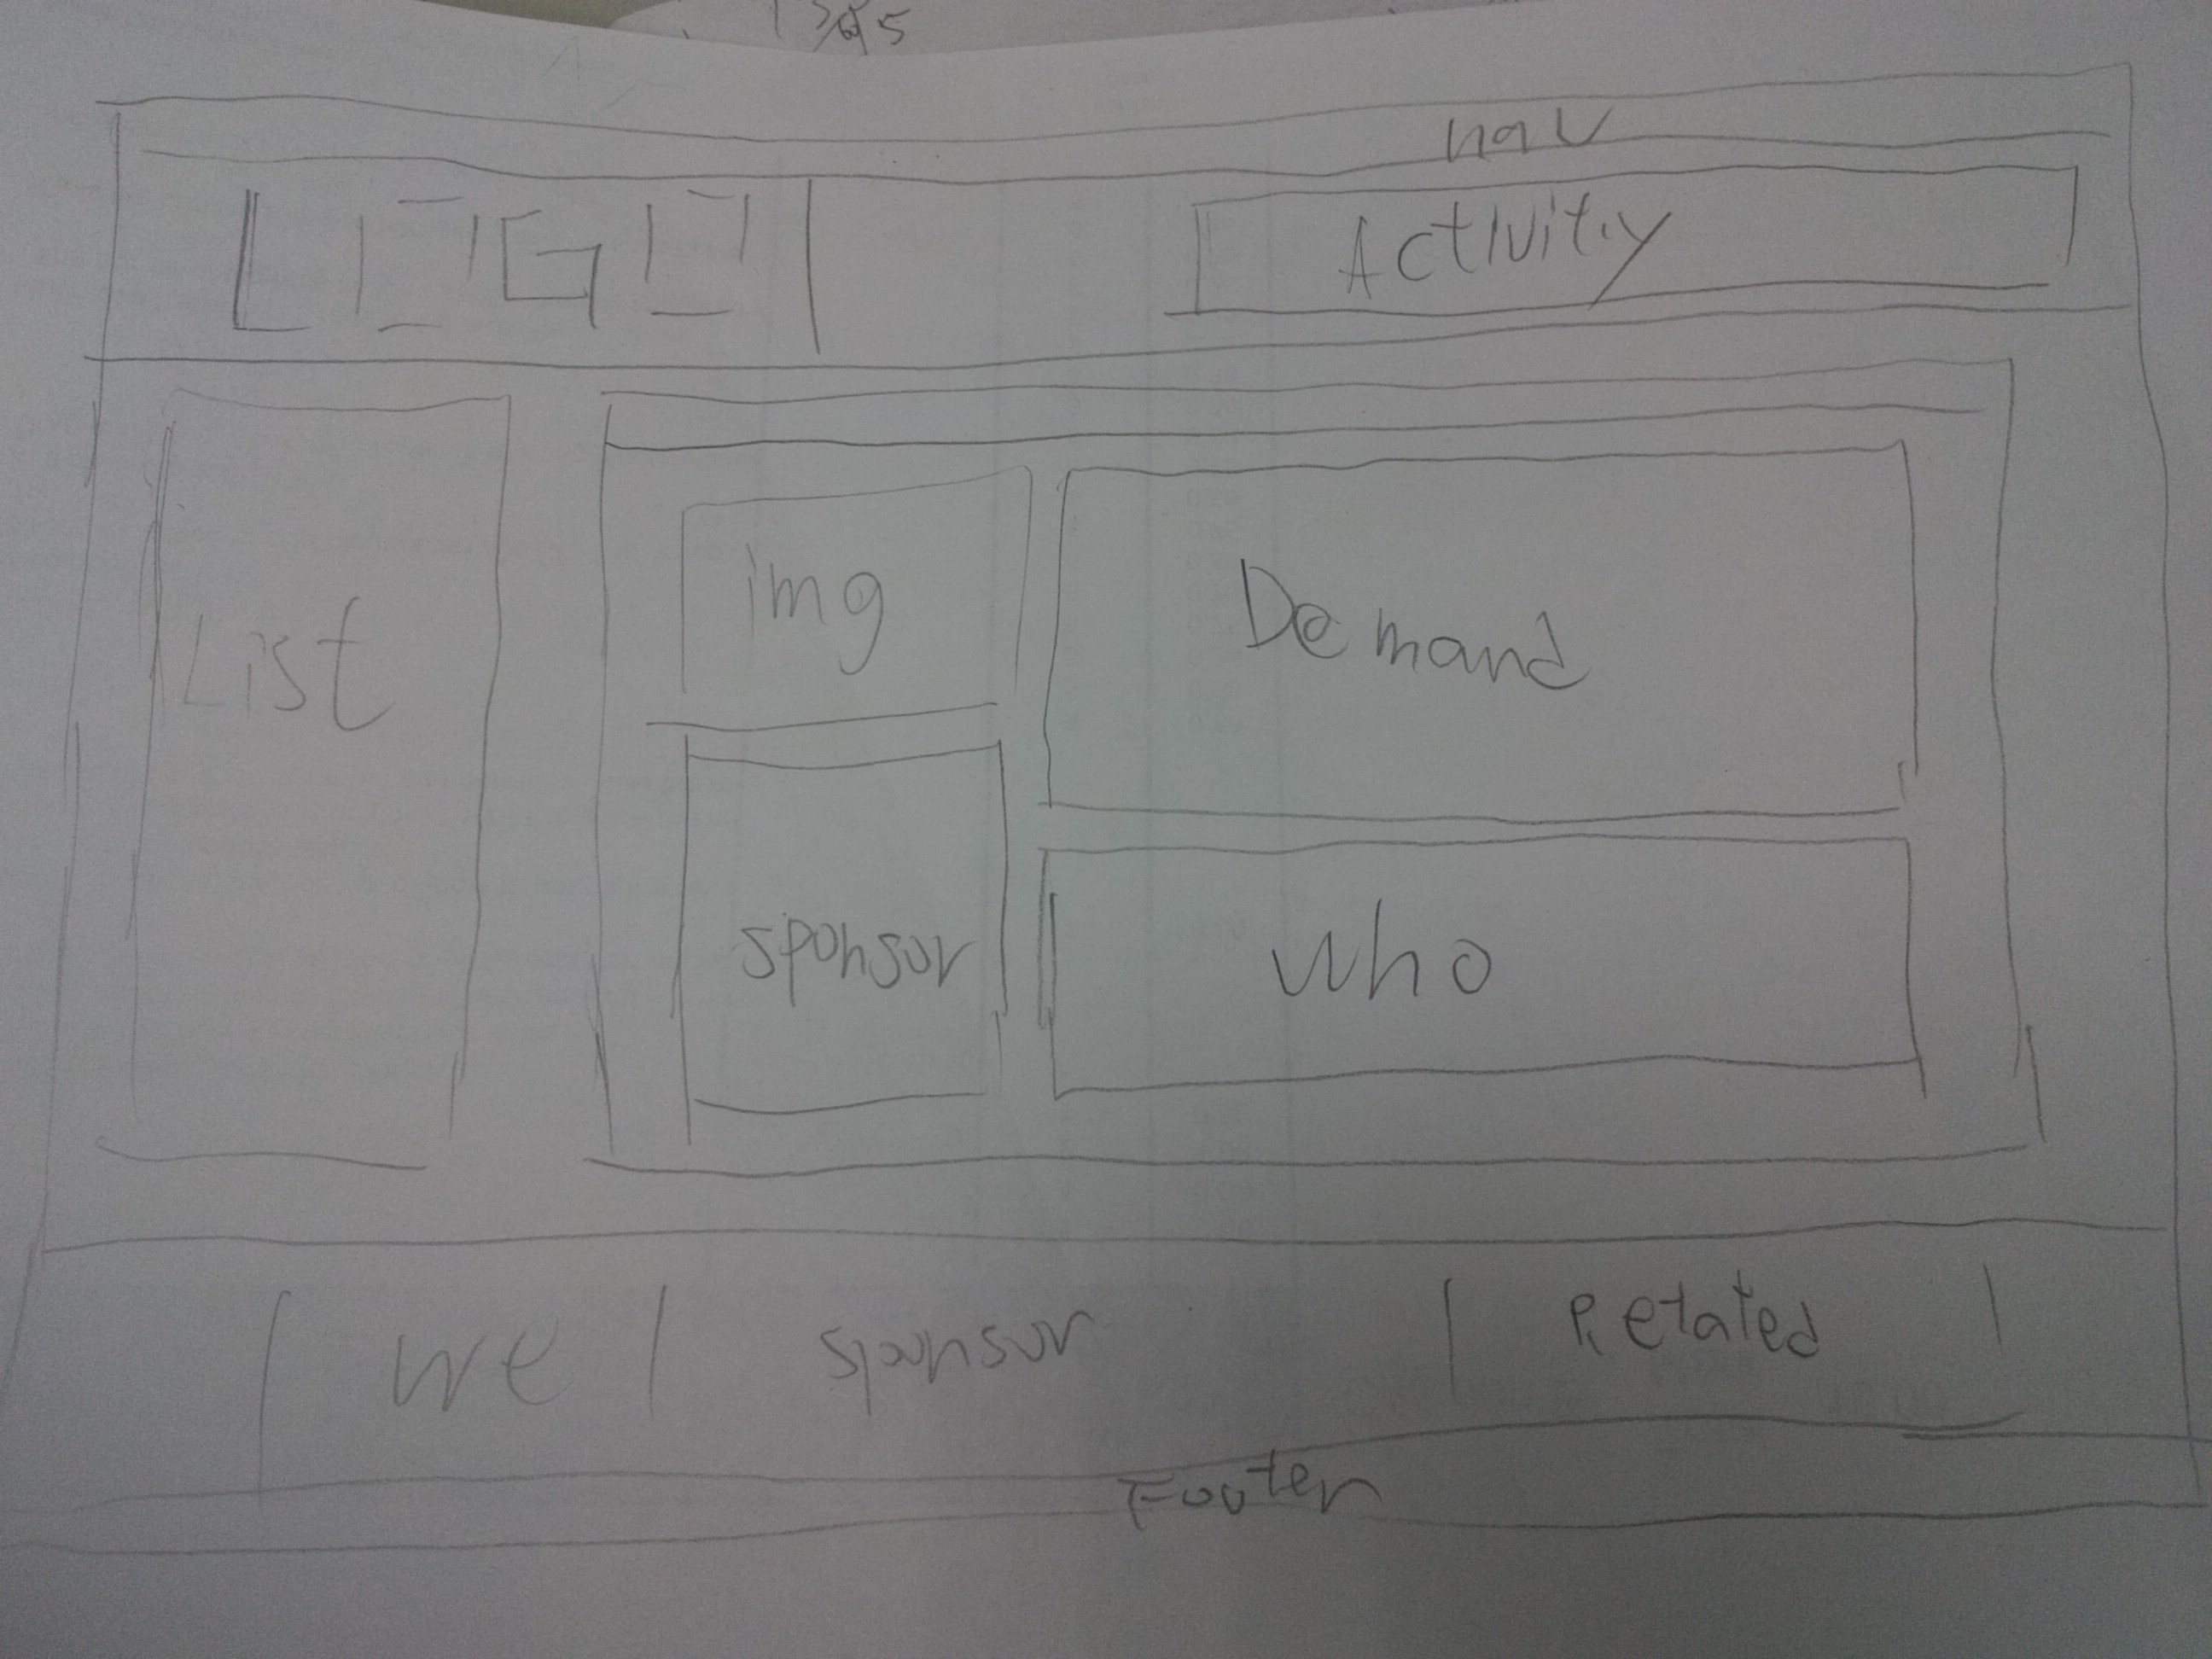 nav
LOGO
Activitiy
List
img
Demand
sponsor
who
we
sponsor
Retated
Footer